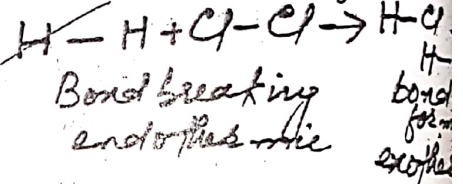 H – H + Cl – Cl → H-Cl
H-
Bond breaking
endothermic
bond
form
exothe